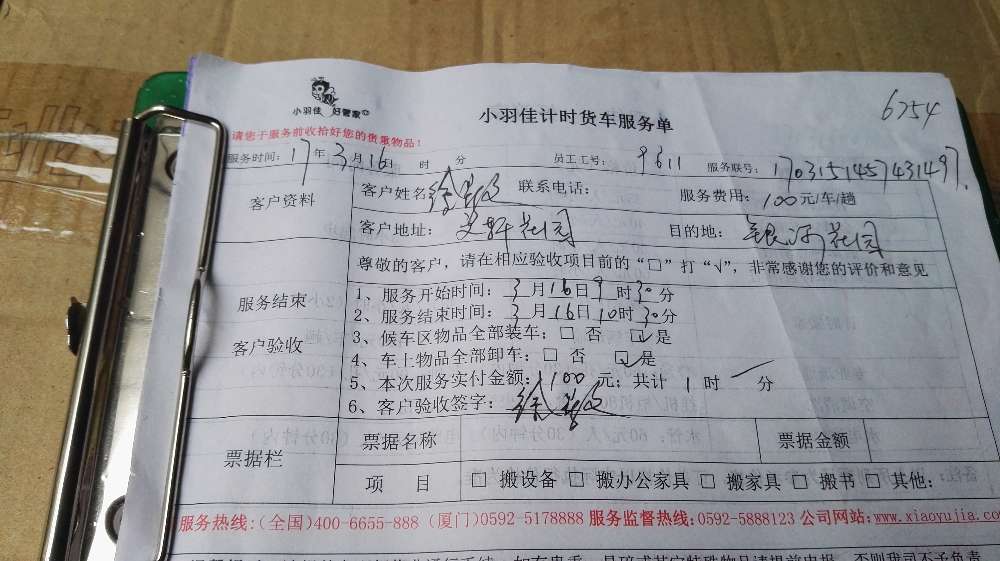 小羽佳 好管家
小羽佳计时货车服务单
6754
请您于服务前收拾好您的贵重物品！
服务时间：17年3月16 时 分 员工工号：9611 服务联号：1703151457431497
客户资料
客户姓名 联系电话： 服务费用：100元/车/趟
客户地址： 花园 目的地：银河花园
尊敬的客户，请在相应验收项目前的“□”打“√”，非常感谢您的评价和意见
服务结束
客户验收
1、服务开始时间：3月16日9时30分
2、服务结束时间：3月16日10时30分
3、候车区物品全部装车：□ 否 ☑是
4、车上物品全部卸车：□ 否 ☑是
5、本次服务实付金额：100元；共计 1 时 一 分
6、客户验收签字：
票据栏
票据名称 票据金额
项 目 □ 搬设备 □ 搬办公家具 □ 搬家具 □ 搬书 □ 其他：
服务热线：(全国)400-6655-888 (厦门)0592-5178888 服务监督热线：0592-5888123 公司网站：www.xiaoyujia.com